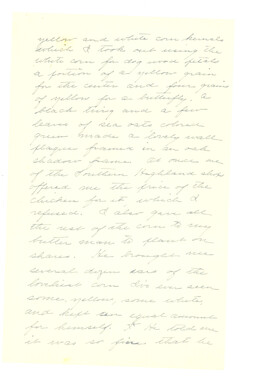 yellow and white corn kernels
which I took out using the
white corn for dog wood petals
a portion of a yellow grain
for the center and four grains
of yellow for a butterfly, a
black twig and a few
leaves of sea oats colored
green made a lovely wall
plaque framed in an oak
shadow frame. So once one
of the Southern Highland shop
offered me the price of the
chicken for it which I
refused. I also gave all
the rest of the corn to my
butter man to plant on
shares. He brought me
several dozen ears of the
corn
some, yellow, some white,
and kept an equal amount
for himself. He told me
it was so fine that he